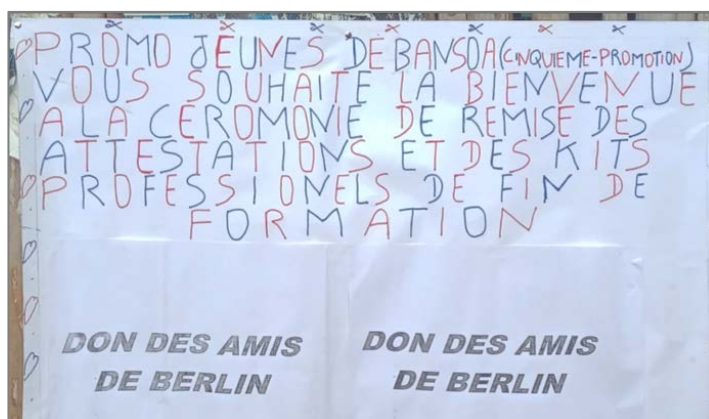 PROMO JEUNES DE BANSOA (CINQUIEME-PROMOTION)
VOUS SOUHAITE LA BIENVENUE
A LA CEROMONIE DE REMISE DES
ATTESTATIONS ET DES KITS
PROFESSIONELS DE FIN DE
FORMATION
DON DES AMIS
DE BERLIN
DON DES AMIS
DE BERLIN